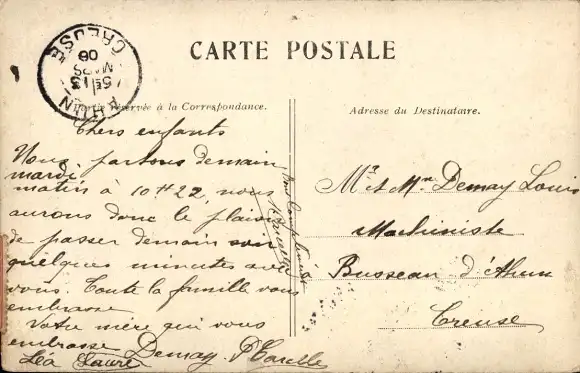 CARTE POSTALE
AHUN
CREUSE
13
MARS
06
Partie réservée à la Correspondance.
Adresse du Destinataire.
Chers enfants
Nous partons demain
mardi
matin à 10H22, nous
aurons donc le plaisir
de passer demain soir
quelques minutes avec
vous. Toute la famille vous
embrasse
Votre mère qui vous
embrasse Demay
Léa Laure
Mr et Mme Demay Louis
Machiniste
Busseau d'Ahun
Creuse